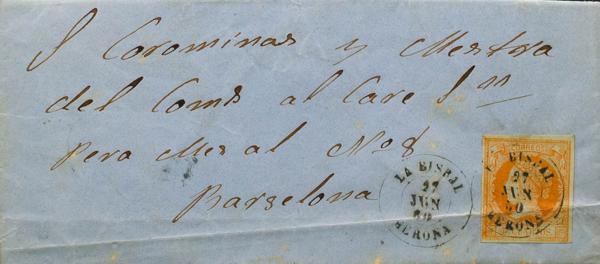 S Corominas y Mestra
del Coms al Care Sn
Pera Mes al No 8
Barselona
LA BISBAL
27
JUN
60
GERONA
CORREOS
LA BISBAL
27
JUN
60
GERONA